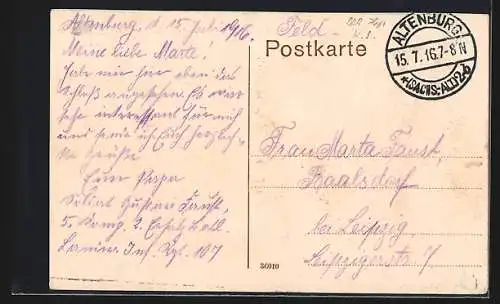 Altenburg, d. 15. Juli 1916.
Meine liebe Marta!
Habe mir hier eben das
Schloß angesehen. Es war
sehr interessant für mich
und sende ich Euch herzlich-
ste Grüße
Euer Papa
Soldat Gustav Faust,
5. Komp. 2. Ersatz Batl.
Inf. Rgt. 107
Feld-
Postkarte
ALTENBURG
15.7.16.7-8N
*(SACHS.-ALT.)2b
Frau Marta Faust,
Baalsdorf
bei Leipzig
Leipzigerstr. 7
36010